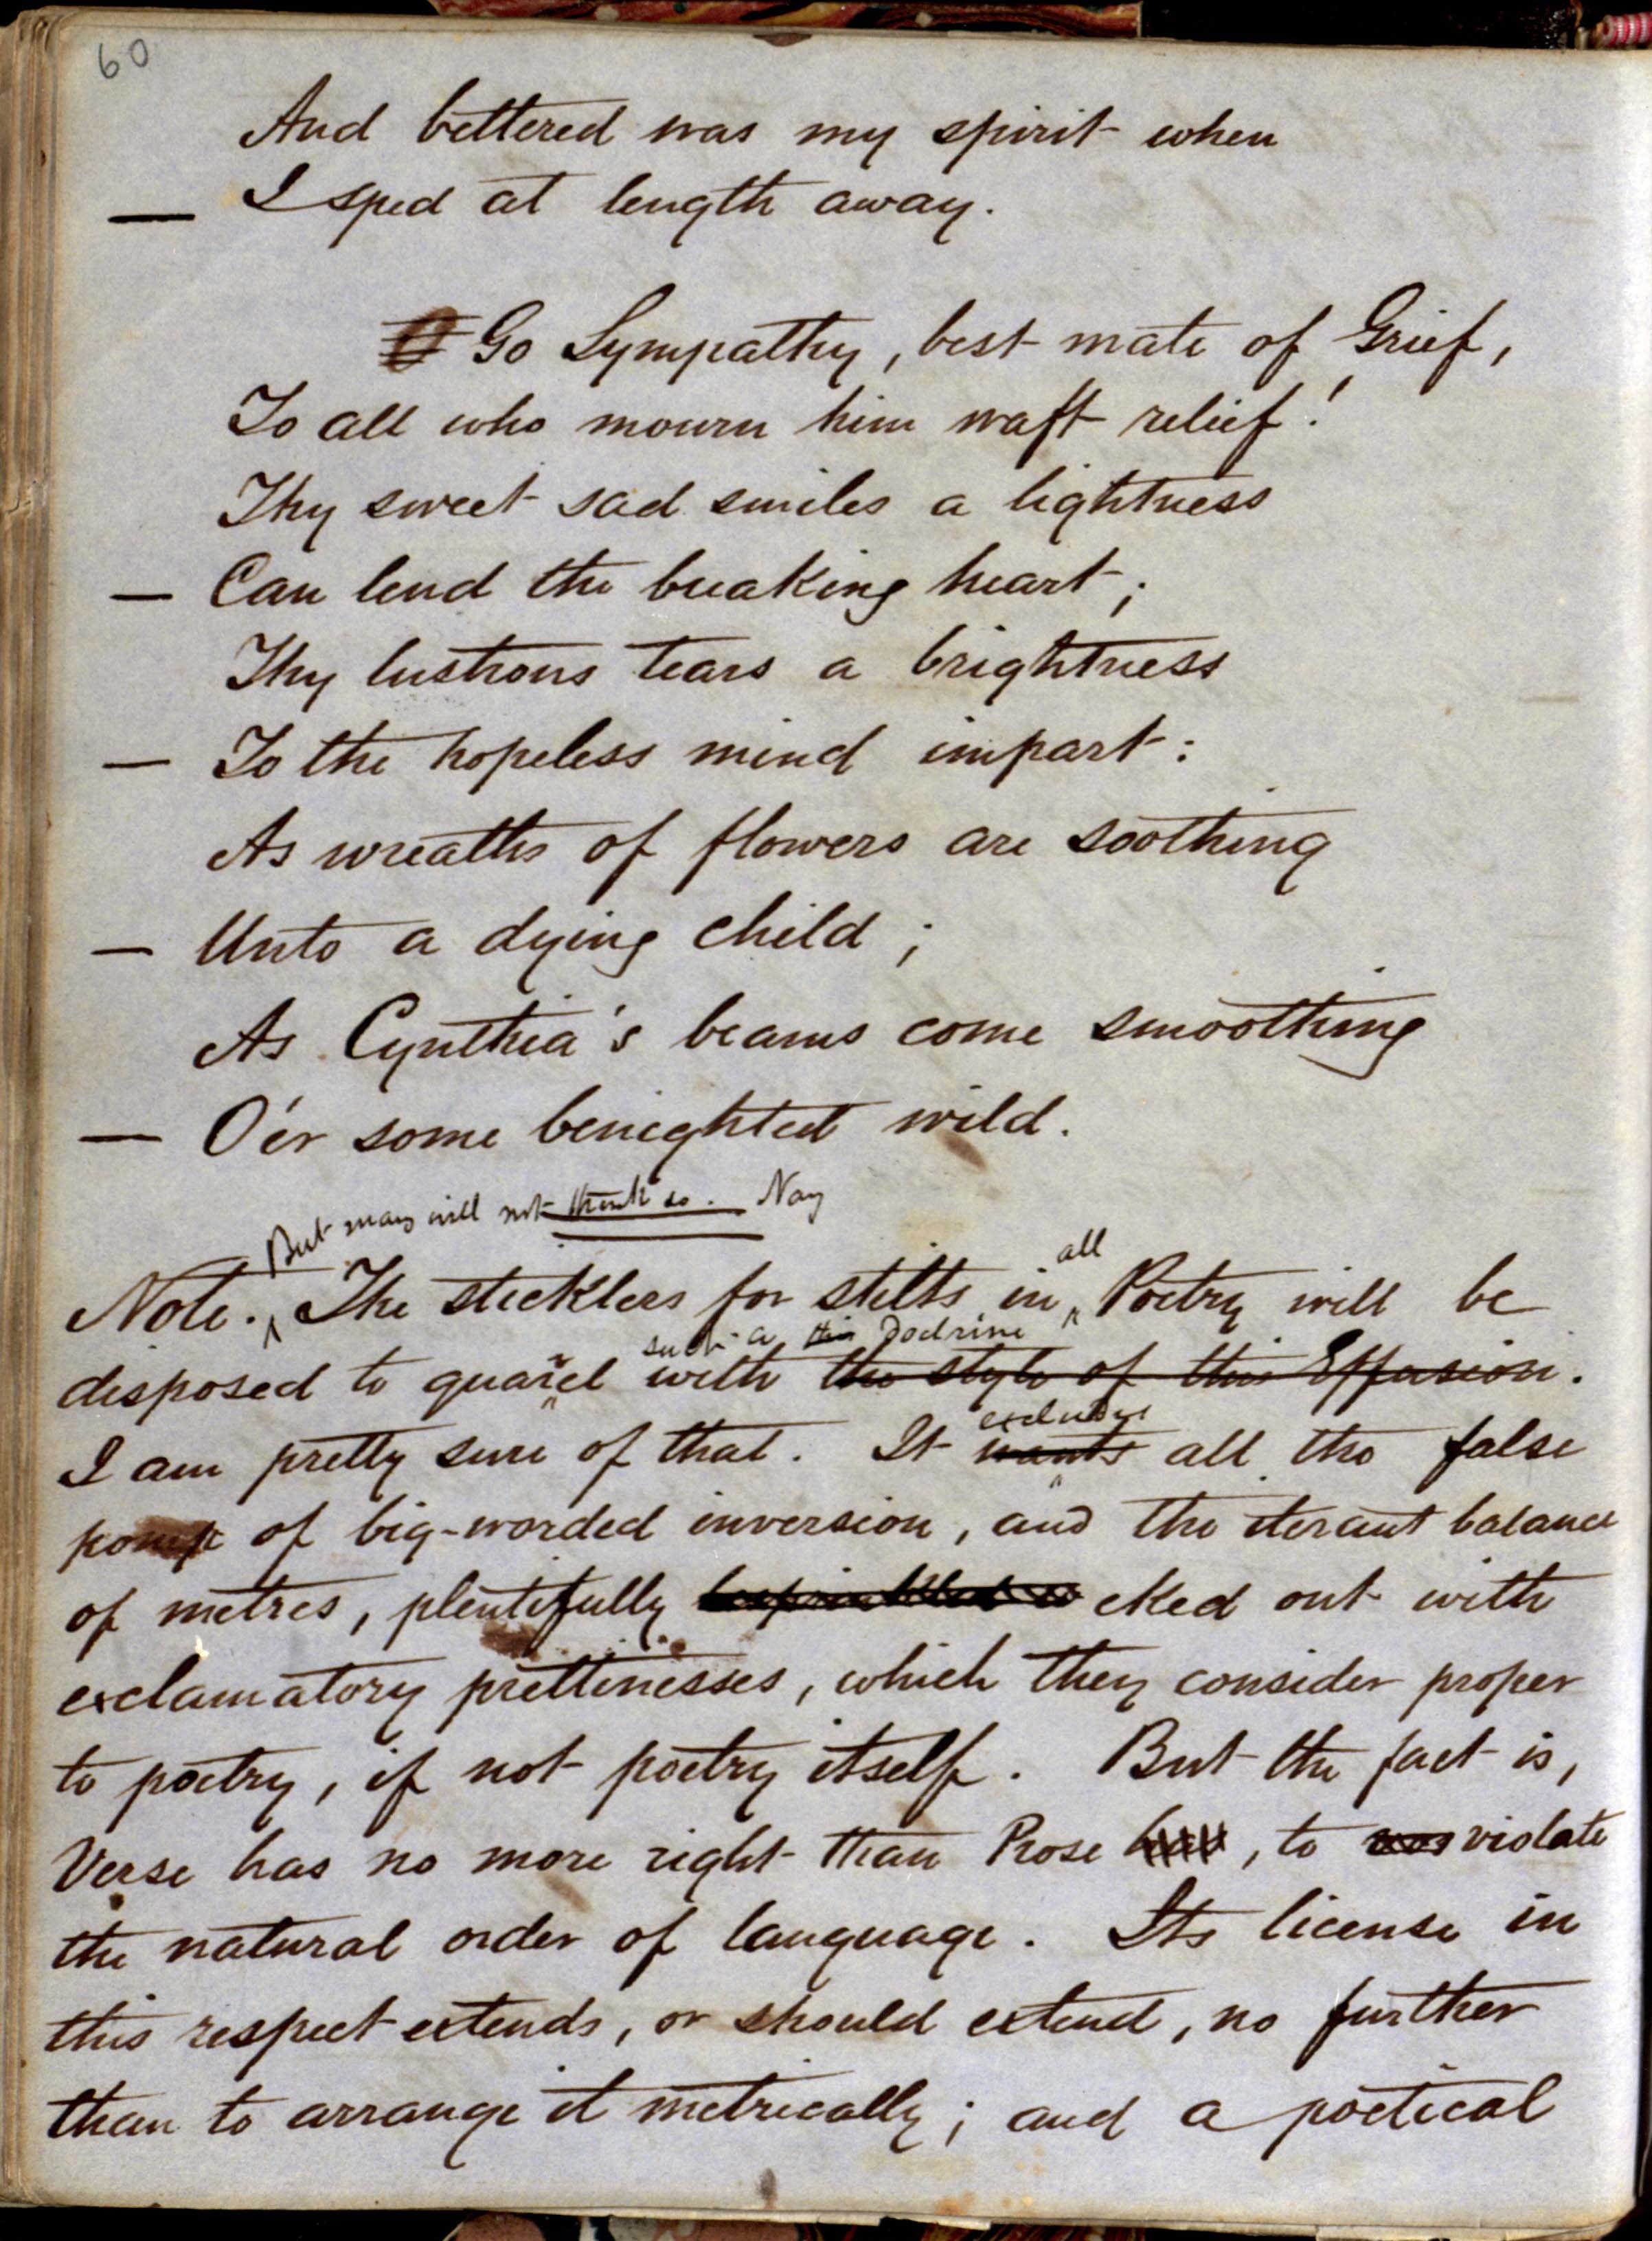 60
And bettered was my spirit when
— I sped at length away.
Go Sympathy, best mate of Grief,
To all who mourn him waft relief!
Thy sweet sad smiles a lightness
— Can lend the breaking heart;
Thy lustrous tears a brightness
— To the hopeless mind impart:
As wreaths of flowers are soothing
— Unto a dying child;
As Cynthia's beams come smoothing
— O'er some benighted wild.
But many will not think so. Nay
all
Note. ^ The sticklers for stilts in ^ Poetry will be
such a this Doctrine
disposed to quarrel with the style of this Effusion.
I am pretty sure of that. It wants all the false
excludes
pomp of big-worded inversion, and the iterant balance
of metres, plentifully besprinkled eked out with
exclamatory prettinesses, which they consider proper
to poetry, if not poetry itself. But the fact is,
Verse has no more right than Prose has, to violate
the natural order of language. Its license in
this respect extends, or should extend, no further
than to arrange it metrically; and a poetical